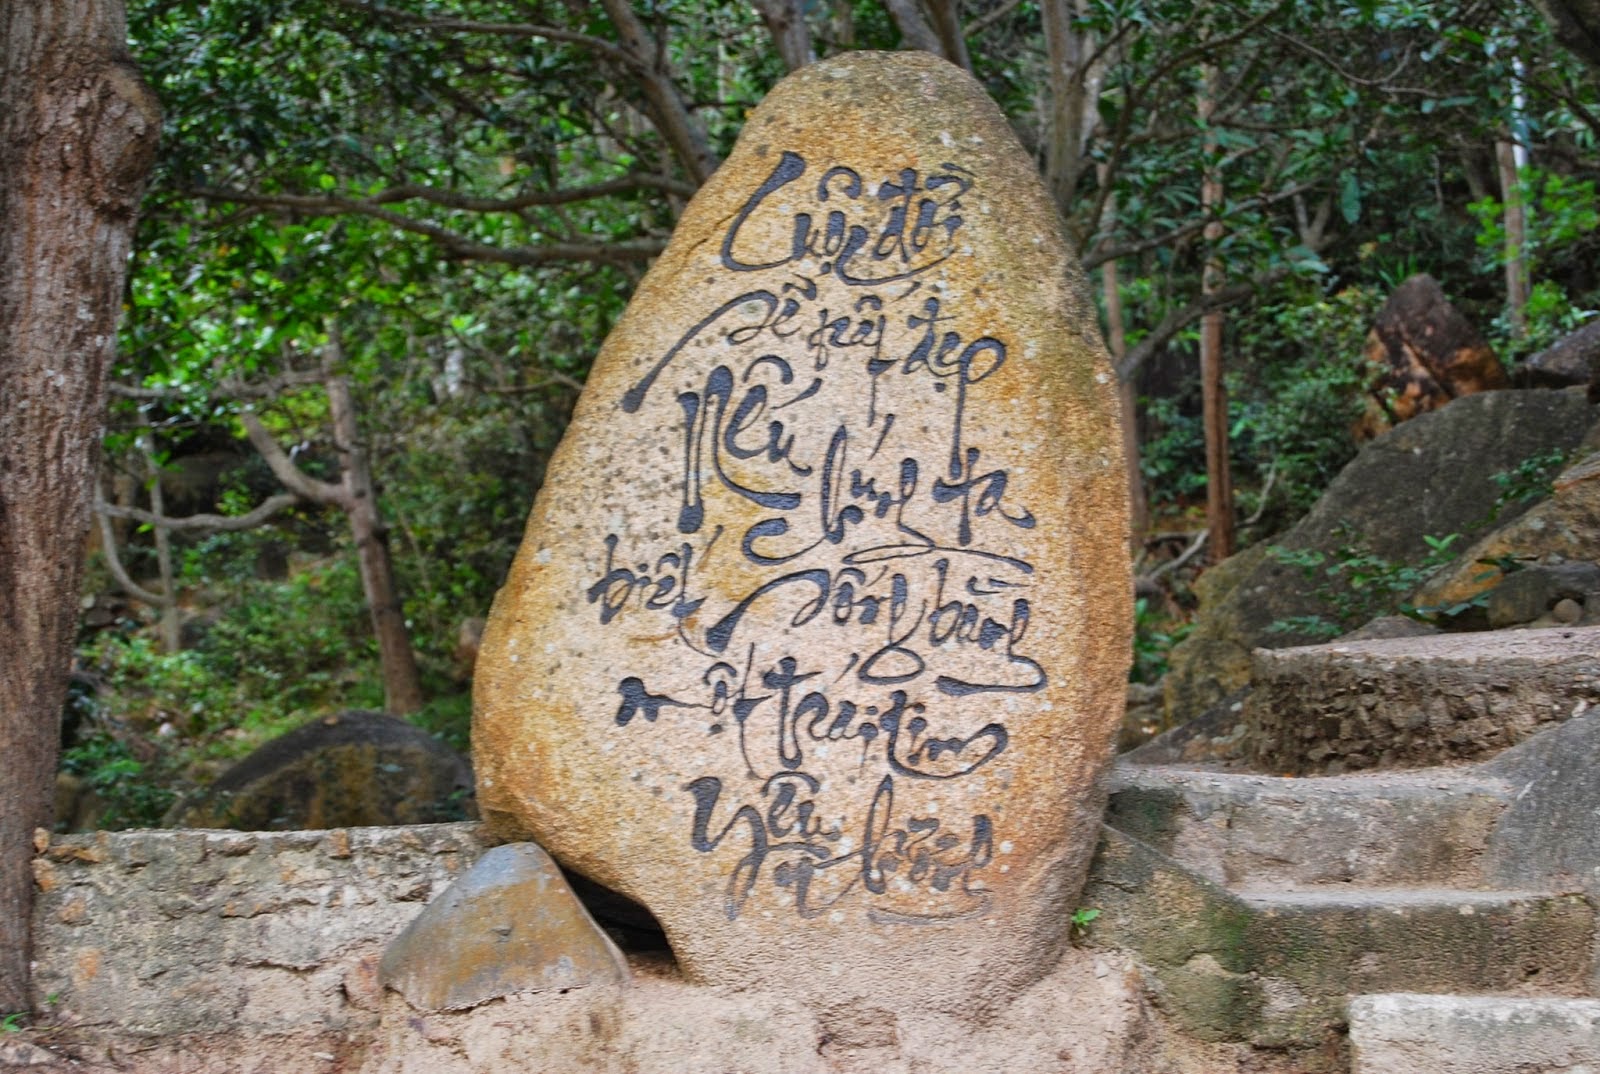 Cuộc đời
sẽ rất đẹp
Nếu chúng ta
biết sống bằng
một trái tim
Yêu